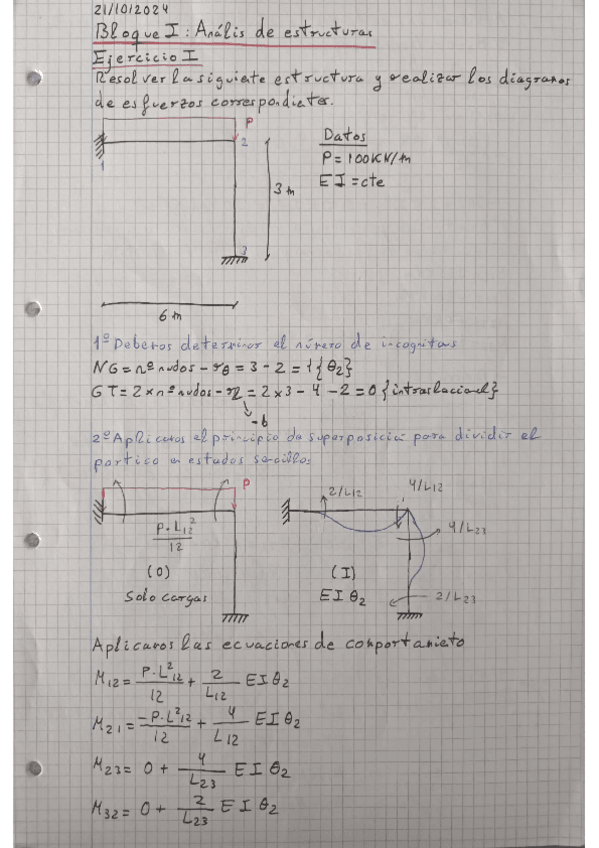 21/10/2024
Bloque I: Anális de estructuras
Ejercicio I
Resolver la siguiete estructura y realizar los diagramas
de esfuerzos correspondietes.
P
Datos
1
2
P=100KN/m
EI=cte
3 m
3
6 m
1º Debemos determinar el número de incognitas
NG=nº nudos-rθ=3-2=1{θ2}
GT=2×nº nudos-r=2×3-4-2=0{intraslacional}
-b
2º Aplicamos el principio de superposición para dividir el
portico en estados sencillos:
P
2/L12
4/L12
P.L12²/12
4/L23
(0)
(I)
2/L23
Solo cargas
EIθ2
Aplicamos las ecuaciones de comportamieto
M12=P.L²12/12+2/L12 EIθ2
M21=-P.L²12/12+4/L12 EIθ2
M23=0+4/L23 EIθ2
M32=0+2/L23 EIθ2